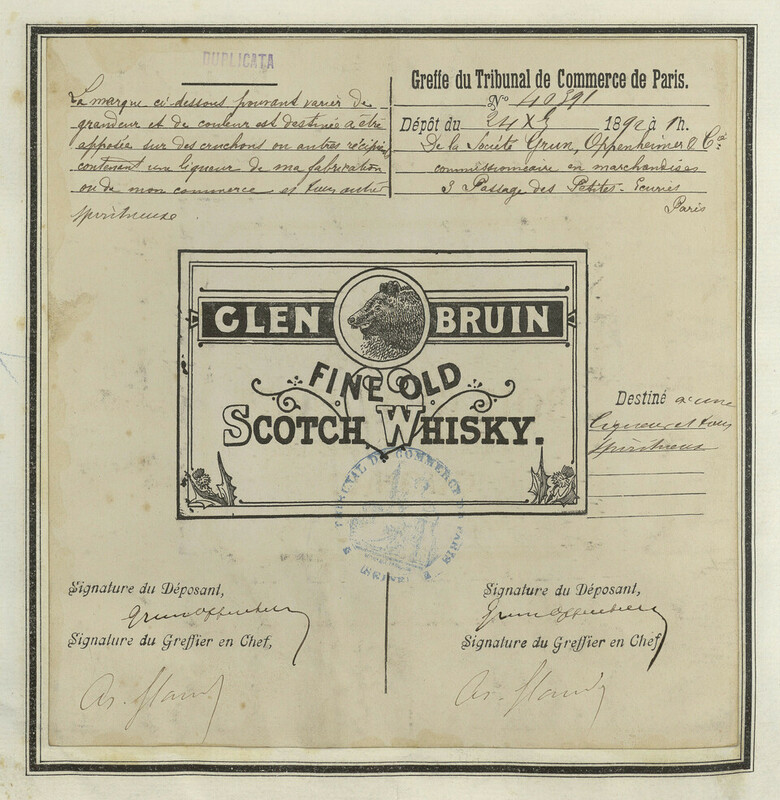 DUPLICATA
La marque ci-dessous pouvant varier de
grandeur et de couleur est destinée à être
apposée sur des cruchons ou autres récipients
contenant une liqueur de ma fabrication
ou de mon commerce et tous autres
spiritueux
Greffe du Tribunal de Commerce de Paris.
No 40391
Dépôt du 24 X 1892 à 1 h.
De la Société Grun, Oppenheimer & Cie
commissionnaire en marchandises
3 Passage des Petites-Ecuries
Paris
GLEN BRUIN
FINE OLD
SCOTCH WHISKY.
Destiné à une
liqueur et tous
spiritueux
TRIBUNAL DE COMMERCE DE PARIS
Signature du Déposant,
Grun Oppenheim
Signature du Greffier en Chef,
Signature du Déposant,
Grun Oppenheim
Signature du Greffier en Chef